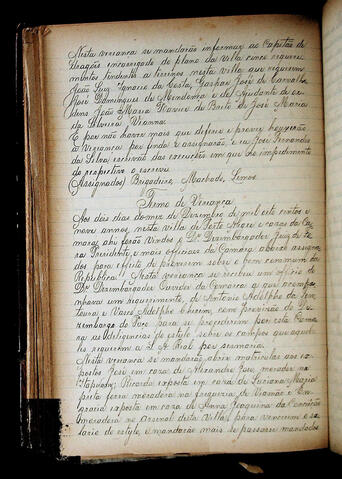 Nesta vereança se mandarão informar ao Capitão de
Dragões encarregado do plano da Villa cinco requeri-
mentos pendentes a terrenos nesta villa que requerem
João Luiz Ignacio da Costa, Gaspar José de Carvalho,
José Domingues de Mendonça e do Ajudante de or-
dens João Maria Xavier de Brito e José Maria
da Silveira Vianna.
E por não haver mais que deferir e prover houverão
a Vereança por finda e assignarão, e eu José Fernandes
da Silva, escrivão das execuções em que no impedimento
do proprietario o escrevi
(Assignados) Brigadeiro, Machado, Lemos
Termo de Vereança
Aos dois dias do mez de Dezembro de mil oito centos e
nove annos, nesta villa de Porto Alegre e cazas da Ca-
mara, ahi forão vindos o Dr. Dezembargador Juiz de fo-
ra Prezidente, e mais officiaes da Camara, abaixo assigna-
dos para effeito de proverem sobre o bem commum da
Republica. Nesta vereança se recebeu um officio do
Dr. Dezembargador Ouvidor da Comarca a que acompa-
nhava um requerimento, de Antonio Adolpho da Fon-
toura e Vasco Adolpho Charem, com provisão do De-
zembargo do Paço para se procederem por esta Cama-
ra as deligencias do estylo sobre os campos que aquel-
les requererão a S. A. Real por sesmaria.
Nesta vereança se mandarão abrir matriculas aos ex-
postos José em caza de Alexandre José, morador na
Itapuam, Ricardo exposto em caza de Luciana Maria
preta forra moradora na freguezia de Viamão e En-
gracia exposta em caza de Anna Joaquina da Conceição
moradora no Arsenal desta Villa, para vencerem o sa-
lario do estylo, e mandarão mais se passarem mandados